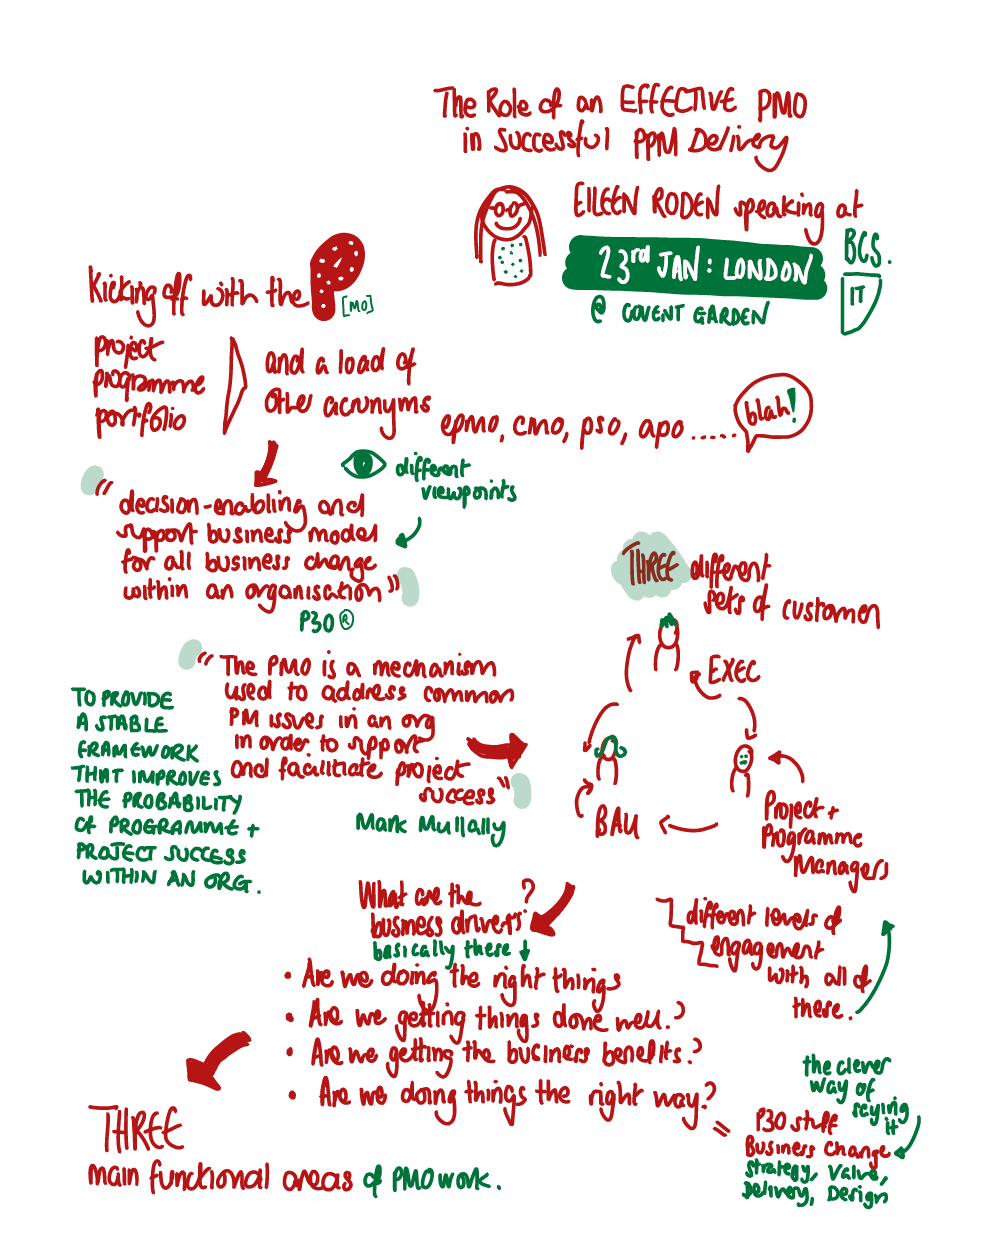 The Role of an EFFECTIVE PMO
in Successful PPM Delivery
EILEEN RODEN speaking at
BCS.
IT
23rd JAN: LONDON
@ COVENT GARDEN
Kicking off with the P
[MO]
project
programme
portfolio
and a load of
other acronyms
epmo, cmo, pso, apo ......
blah!
different
viewpoints
"decision-enabling and
support business model
for all business change
within an organisation"
P3O®
"The PMO is a mechanism
used to address common
PM issues in an org
in order to support
and facilitate project
success"
Mark Mullally
TO PROVIDE
A STABLE
FRAMEWORK
THAT IMPROVES
THE PROBABILITY
OF PROGRAMME +
PROJECT SUCCESS
WITHIN AN ORG.
THREE different
sets of customer
EXEC
Project +
Programme
Managers
BAU
different levels of
engagement
with all of
these.
What are the
business drivers?
basically these
• Are we doing the right things
• Are we getting things done well?
• Are we getting the business benefits?
• Are we doing things the right way?
the clever
way of
saying
it
= P3O stuff
Business Change
Strategy, Value,
Delivery, Design
THREE
main functional areas of PMO work.